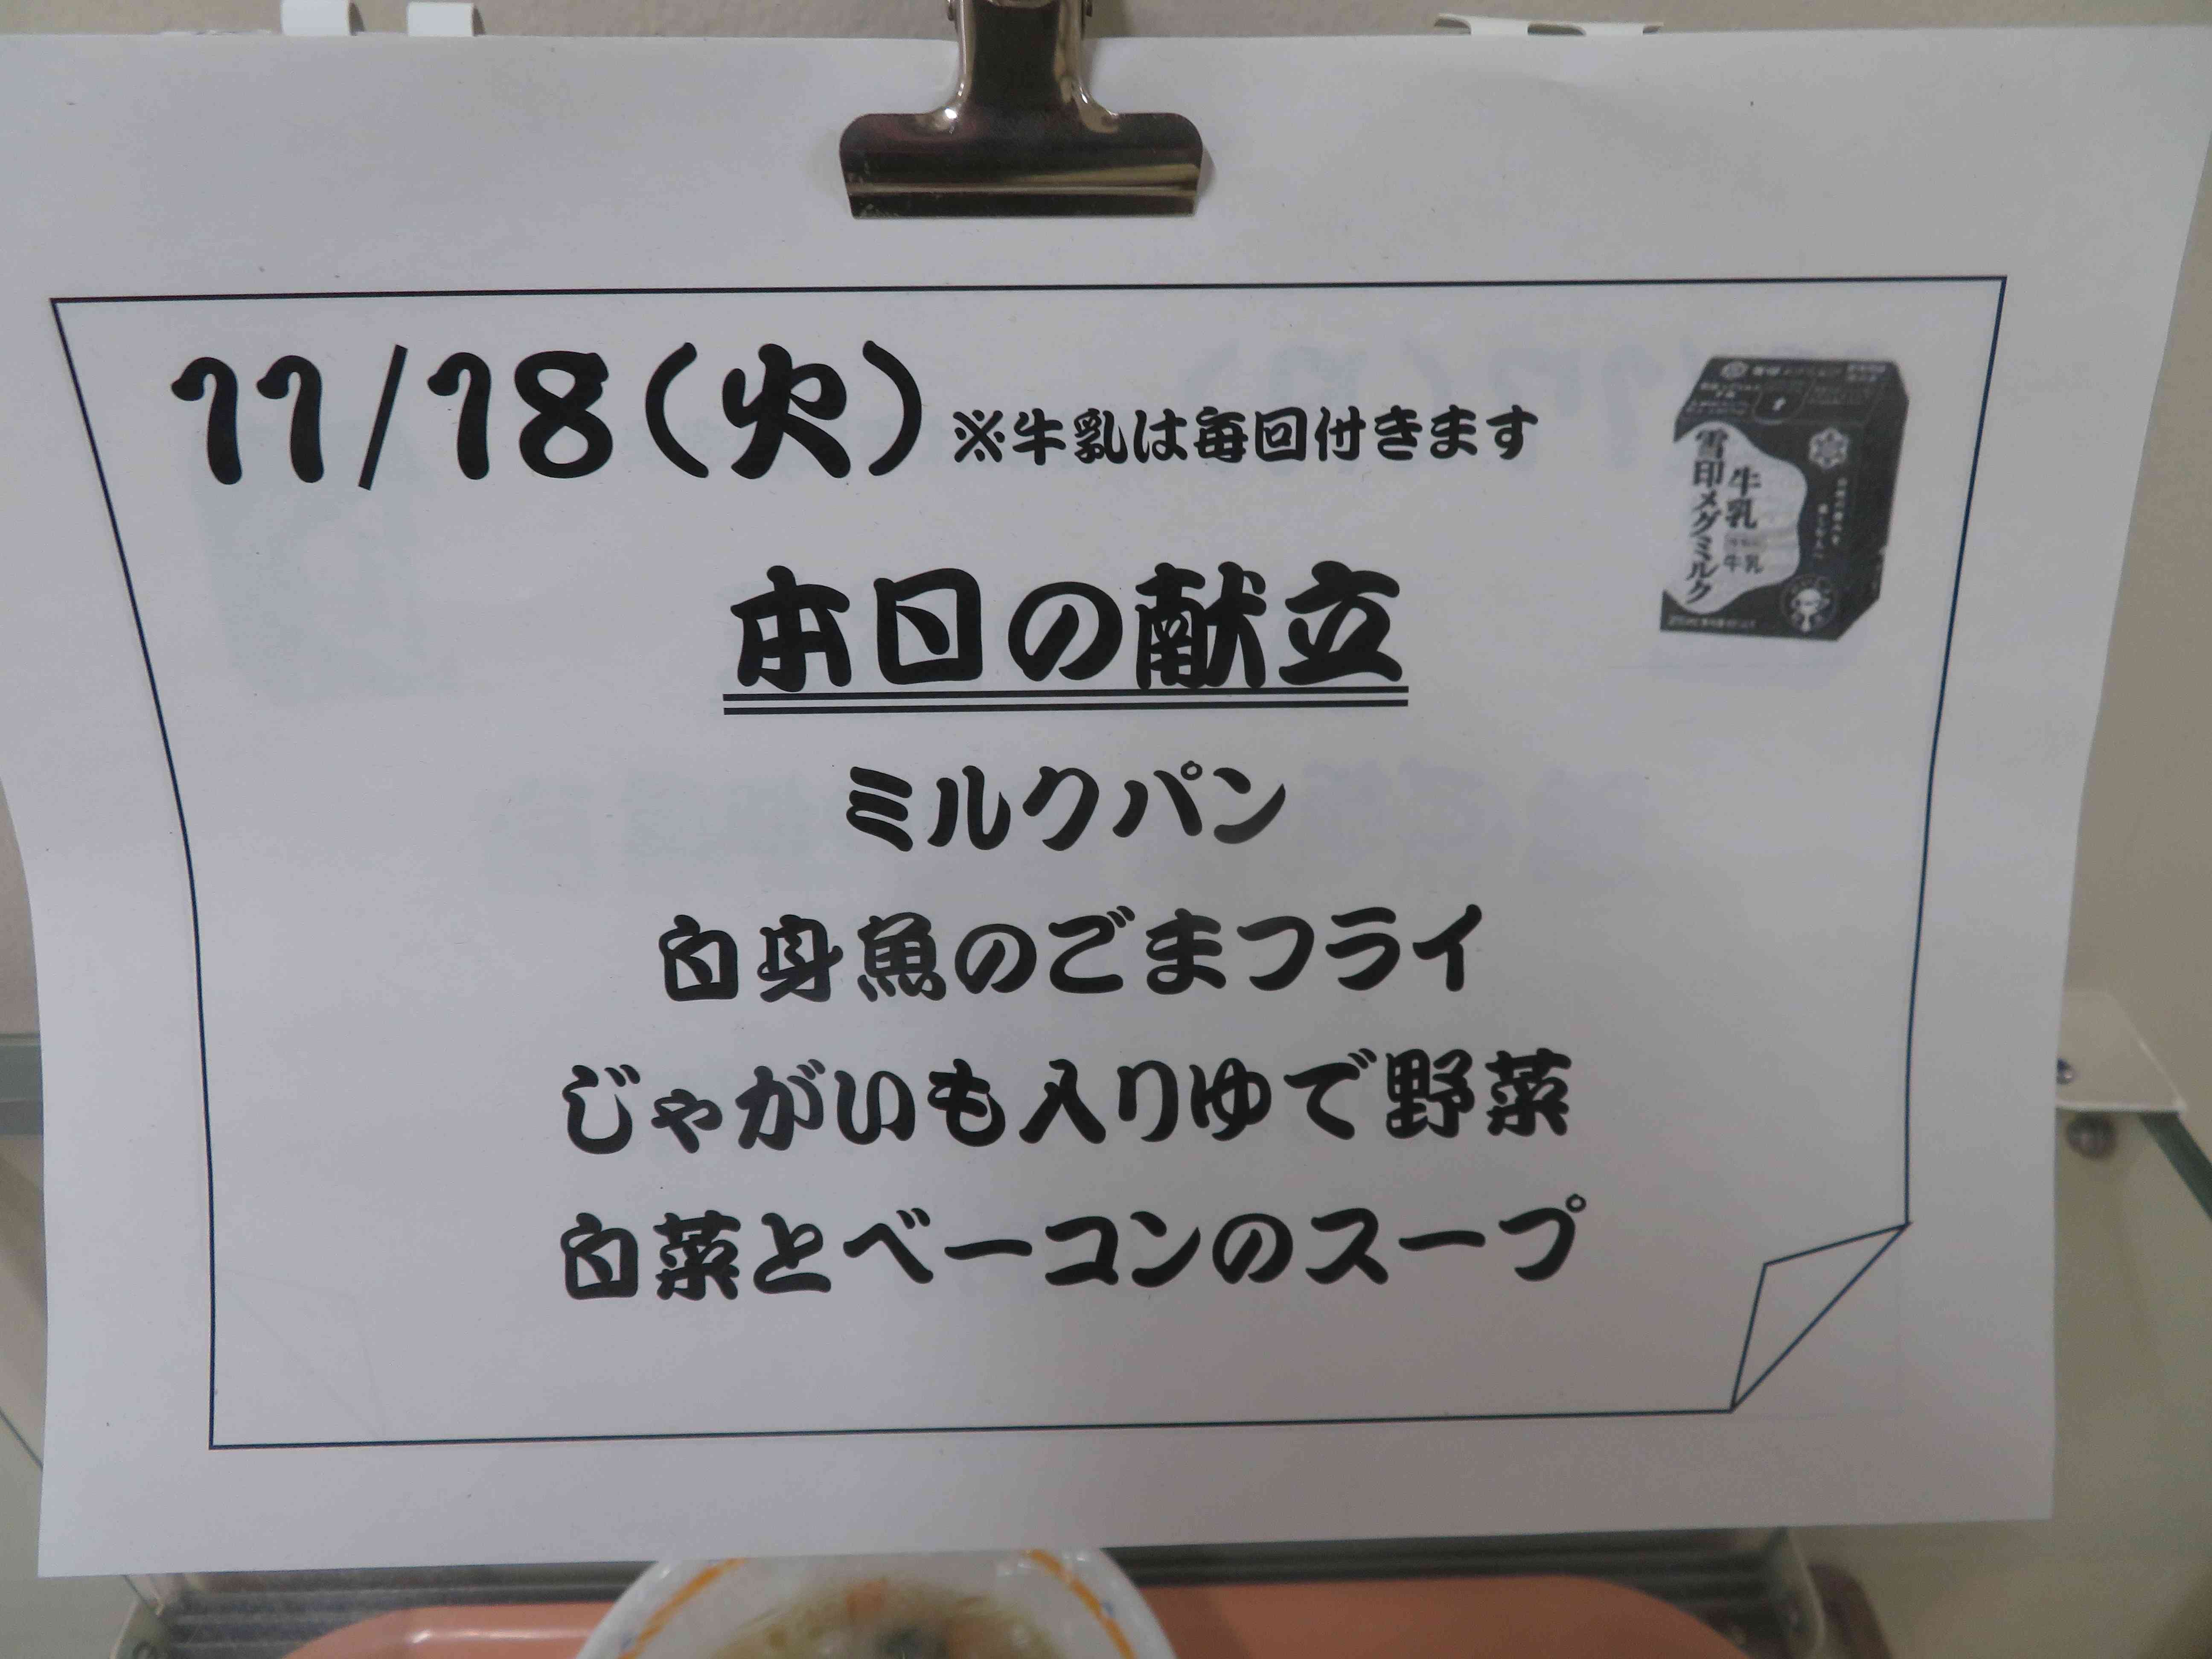 11/18(火) ※牛乳は毎回付きます
雪印メグミルク
牛乳
牛乳
本日の献立
ミルクパン
白身魚のごまフライ
じゃがいも入りゆで野菜
白菜とベーコンのスープ